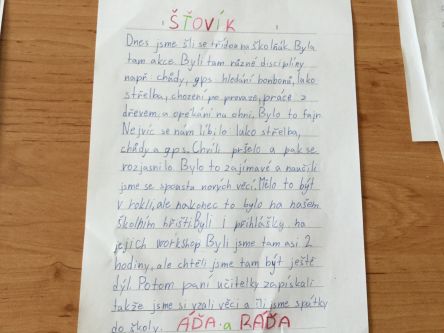 ŠŤOVÍK
Dnes jsme šli se třídou na školňák. Byla
tam akce. Byli tam různé disciplíny
např chůdy, gps hledání bonbonů, lako
střelba, chození po provaze, práce z
dřevem, a opékání na ohni. Bylo to fajn
Nejvíc se nám líbilo lako střelba,
chůdy a gps. Chvíli pršelo a pak se
rozjasnilo Bylo to zajímavé a naučili
jsme se spousta nových věcí. Mělo to být
v rokli, ale nakonec to bylo na našem
školním hřišti Byli i přihlášky na
jejich workshop Byli jsme tam asi 2
hodiny, ale chtěli jsme tam být ještě
dýl. Potom paní učitelky zapískali
takže jsme si vzali věci a šli jsme spátky
do školy. ÁĎA a RÁĎA